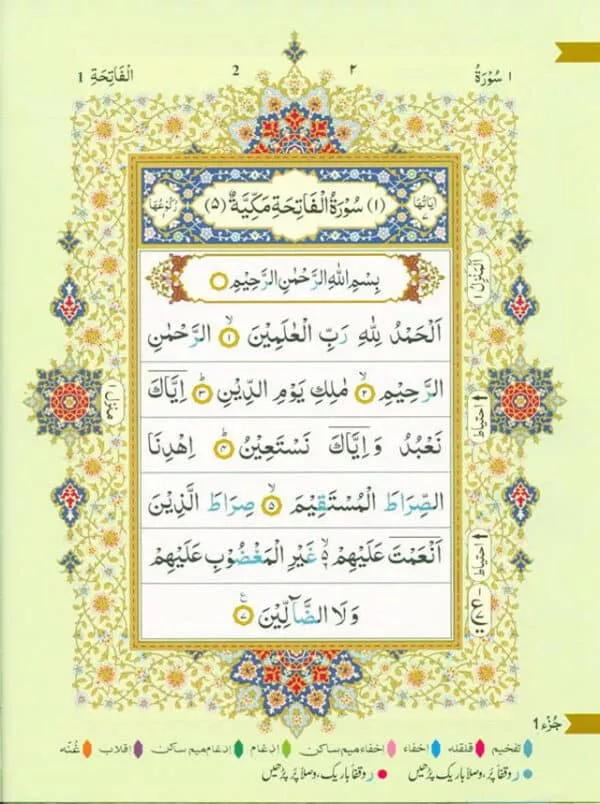 سُوْرَةُ ١ ٢ 2 اَلْفَاتِحَةِ 1
اٰيَاتُهَا ٧ (١) سُوْرَةُ الْفَاتِحَةِ مَكِّيَّةٌ (٥) رُكُوْعُهَا
بِسْمِ اللّٰهِ الرَّحْمٰنِ الرَّحِيْمِ
اَلْحَمْدُ لِلّٰهِ رَبِّ الْعٰلَمِيْنَ ۙ﴿١﴾ الرَّحْمٰنِ
الرَّحِيْمِ ۙ﴿٢﴾ مٰلِكِ يَوْمِ الدِّيْنِ ؕ﴿٣﴾ اِيَّاكَ
نَعْبُدُ وَ اِيَّاكَ نَسْتَعِيْنُ ؕ﴿٤﴾ اِهْدِنَا
الصِّرَاطَ الْمُسْتَقِيْمَ ۙ﴿٥﴾ صِرَاطَ الَّذِيْنَ
اَنْعَمْتَ عَلَيْهِمْ ۙ۬ غَيْرِ الْمَغْضُوْبِ عَلَيْهِمْ
وَلَا الضَّآلِّيْنَ ﴿٧﴾
اَلْمَنْزِلُ ١
احتیاط
احتیاط
منزل ١
جُزْء 1
تفخیم قلقله إخفاء إخفاء میم ساکن إدغام إدغام میم ساکن إقلاب غُنّه
ر وقفاً پُر، وصلاً باریک پڑھیں ر وقفاً باریک، وصلاً پُر پڑھیں